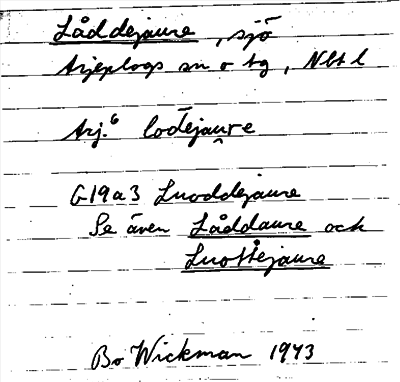 Låddejaure, sjö
Arjeplogs sn o tg, Nbt l
Arj.⁶ lōd̄ejau̯re
G19a3 Luoddejaure
Se även Låddaure och
Luottejaure
Bo Wickman 1943